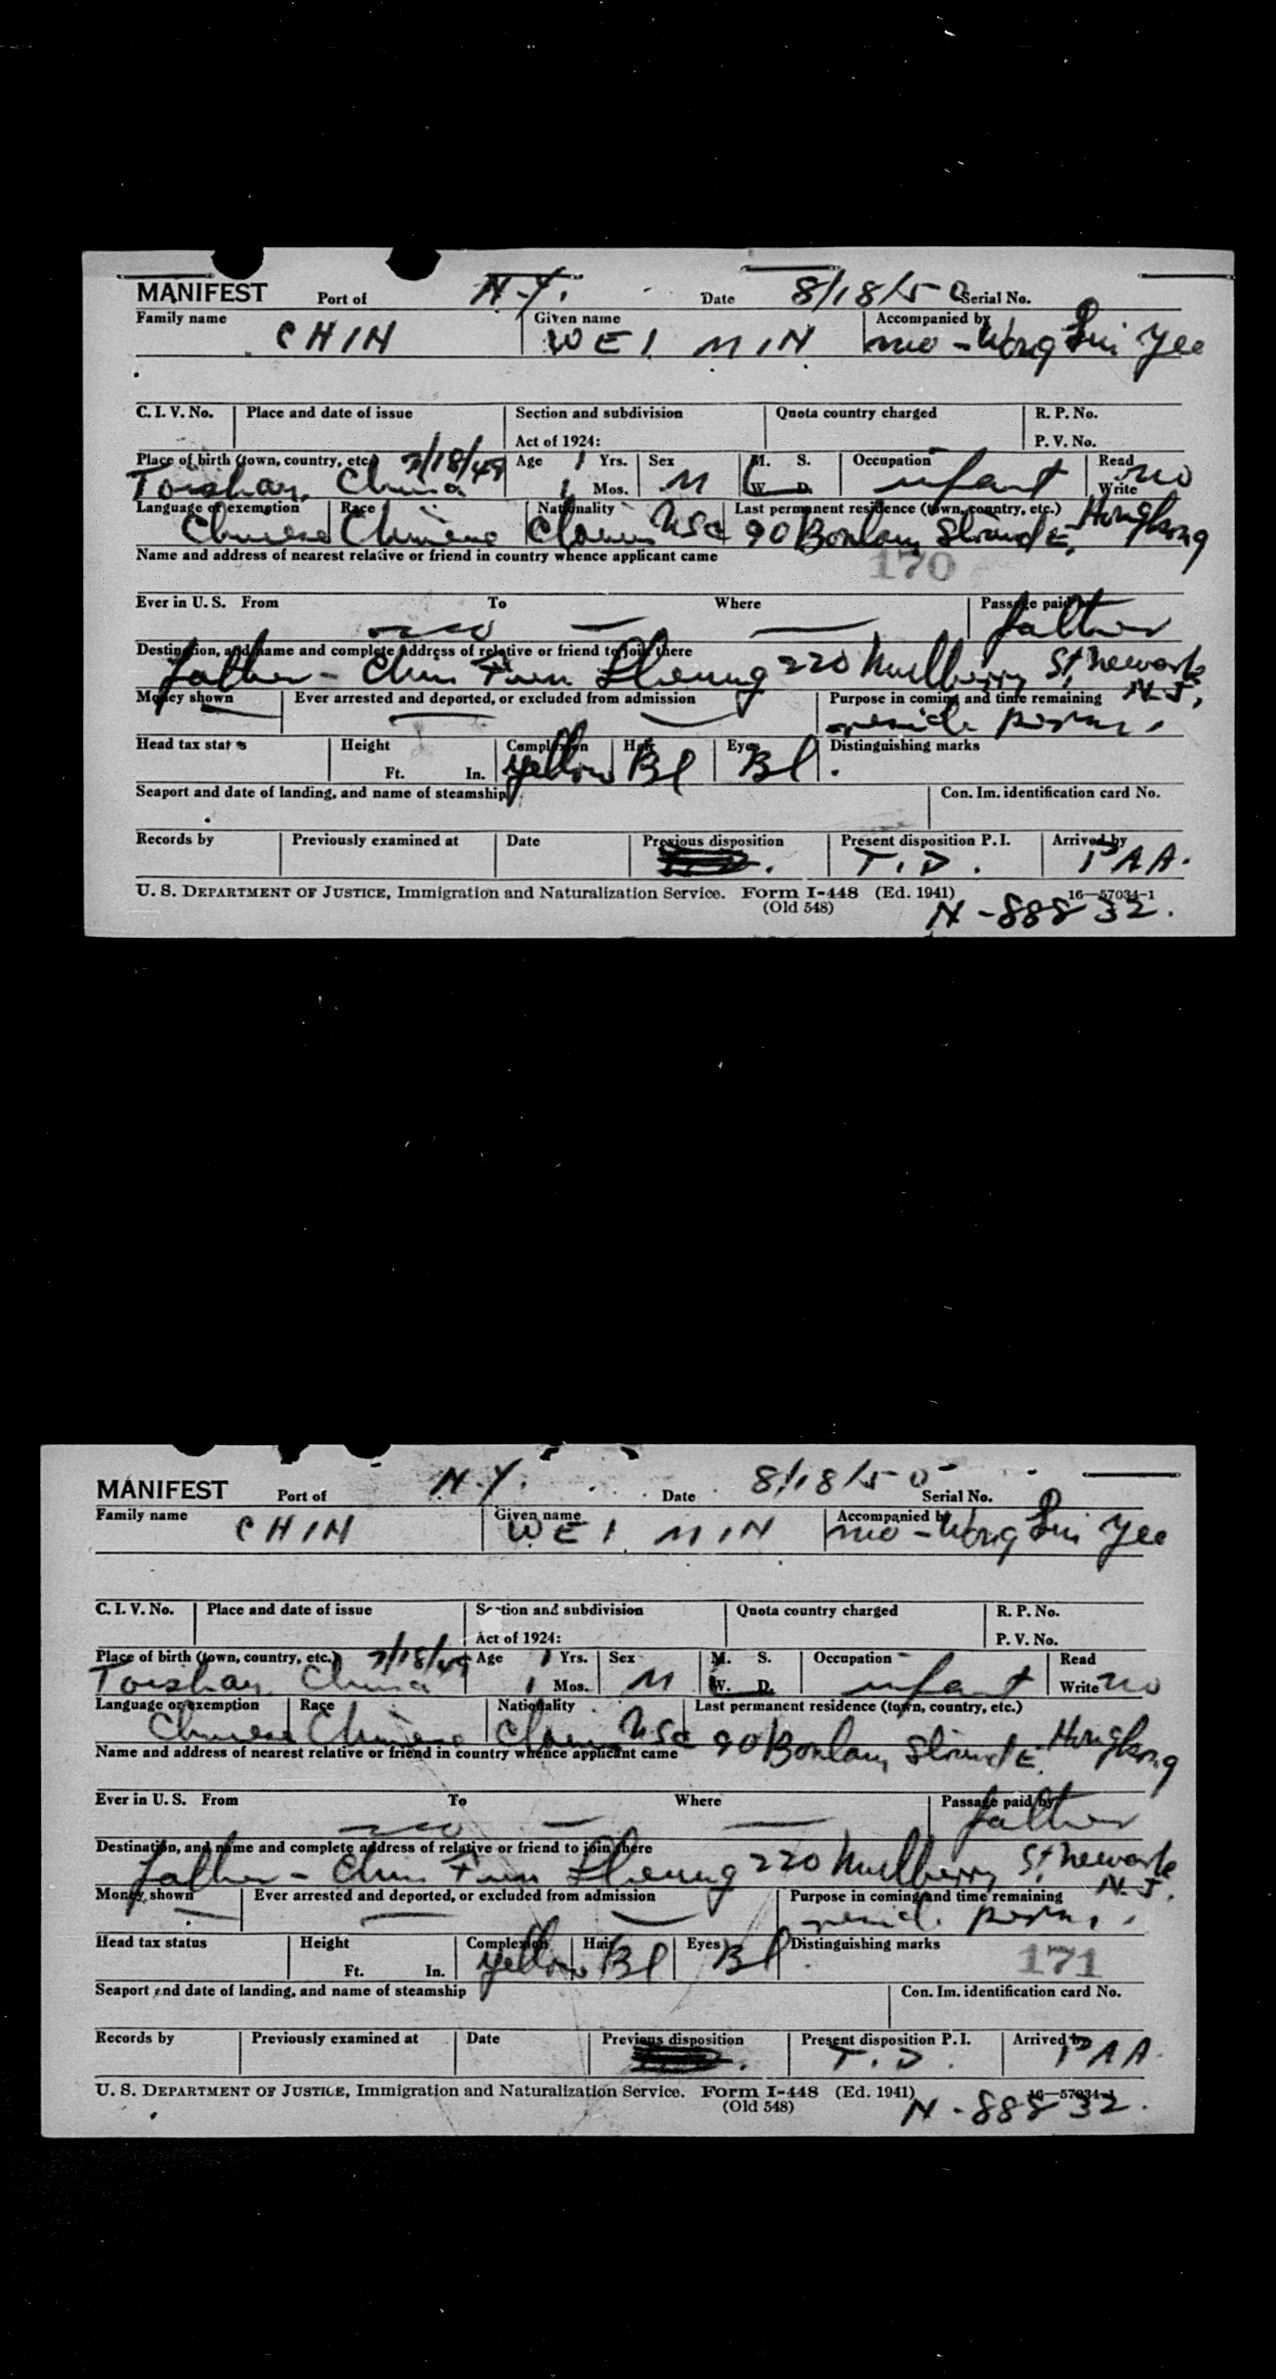 MANIFEST Port of N.Y. Date 8/18/50 Serial No.
Family name CHIN Given name WEI MIN Accompanied by mo - Wong Sui Yee
C. I. V. No. Place and date of issue Section and subdivision Quota country charged R. P. No.
Act of 1924: P. V. No.
Place of birth (town, country, etc.) 7/18/49 Age 1 Yrs. Sex M. S. Occupation Read
Toishan, China 1 Mos. M W. D. infant Write no
Language or exemption Race Nationality Last permanent residence (town, country, etc.)
Chinese Chinese Claims USC 90 Bonham Strand E. Hongkong
Name and address of nearest relative or friend in country whence applicant came
170
Ever in U. S. From To Where Passage paid by
no — — father
Destination, and name and complete address of relative or friend to join there
father - Chin Fun Sheung 220 Mulberry St, Newark N.J.
Money shown Ever arrested and deported, or excluded from admission Purpose in coming and time remaining
— — — reside perm.
Head tax status Height Complexion Hair Eyes Distinguishing marks
Ft. In. yellow Bl Bl.
Seaport and date of landing, and name of steamship Con. Im. identification card No.
Records by Previously examined at Date Previous disposition Present disposition P. I. Arrived by
T.D. PAA.
U. S. DEPARTMENT OF JUSTICE, Immigration and Naturalization Service. Form I-448 (Ed. 1941) 16—57034-1
(Old 548) N-88832.
MANIFEST Port of N.Y. Date 8/18/50 Serial No.
Family name CHIN Given name WEI MIN Accompanied by mo - Wong Sui Yee
C. I. V. No. Place and date of issue Section and subdivision Quota country charged R. P. No.
Act of 1924: P. V. No.
Place of birth (town, country, etc.) 7/18/49 Age 1 Yrs. Sex M. S. Occupation Read
Toishan, China 1 Mos. M W. D. infant Write no
Language or exemption Race Nationality Last permanent residence (town, country, etc.)
Chinese Chinese Claims USC 90 Bonham Strand E. Hongkong
Name and address of nearest relative or friend in country whence applicant came
Ever in U. S. From To Where Passage paid by
no — — father
Destination, and name and complete address of relative or friend to join there
father - Chin Fun Sheung 220 Mulberry St, Newark N.J.
Money shown Ever arrested and deported, or excluded from admission Purpose in coming and time remaining
— — — reside perm.
Head tax status Height Complexion Hair Eyes Distinguishing marks 171
Ft. In. yellow Bl Bl.
Seaport and date of landing, and name of steamship Con. Im. identification card No.
Records by Previously examined at Date Previous disposition Present disposition P. I. Arrived by
T.D. PAA.
U. S. DEPARTMENT OF JUSTICE, Immigration and Naturalization Service. Form I-448 (Ed. 1941) 16—57034-1
(Old 548) N-88832.